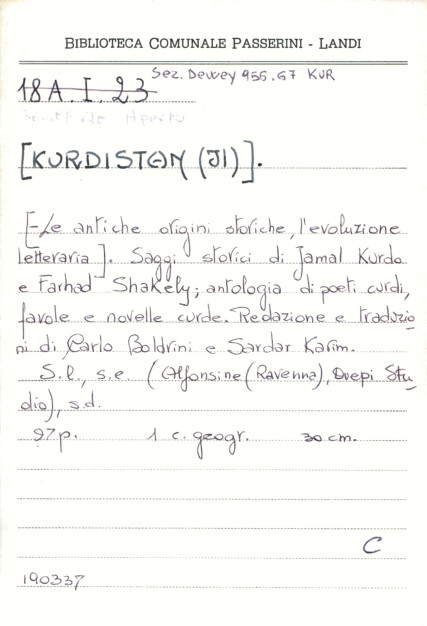 BIBLIOTECA COMUNALE PASSERINI - LANDI
Sez. Dewey 956.67 KUR
18A.I.23
[KURDISTAN (JI)].
[-Le antiche origini storiche, l'evoluzione
letteraria]. Saggi storici di Jamal Kurdo
e Farhad Shakely; antologia di poeti curdi,
favole e novelle curde. Redazione e traduzio
ni di Carlo Boldrini e Sardar Karim.
S.l., s.e. (Alfonsine (Ravenna), Duepi Stu
dio), s.d.
97p. 1 c. geogr. 30 cm.
C
190337